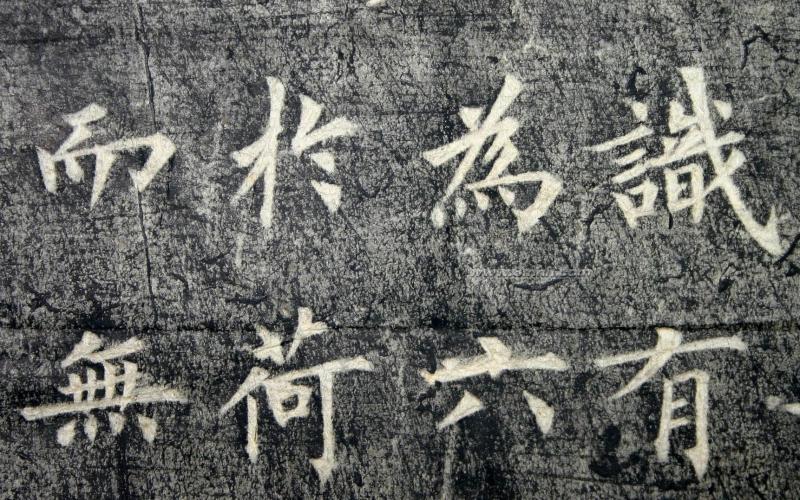 識有
為六
於荷
而無